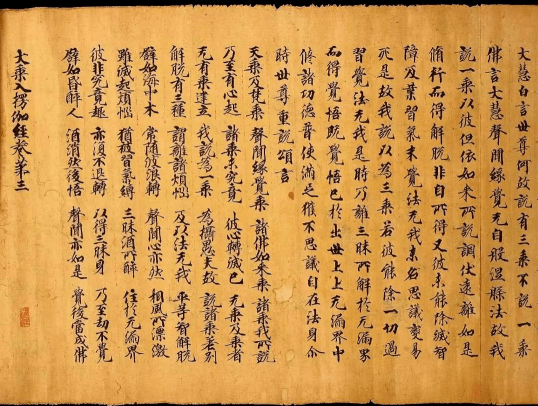 大慧白言世尊何故說有三乘不說一乘
佛言大慧聲聞緣覺无自般涅槃法故我
說一乘以彼但依如來所說調伏遠離如是
脩行而得解脫非自所得又彼未能除滅智
障及業習氣未覺法无我未名不思議變易
死是故我說以為三乘若彼能除一切過
習覺法无我是時乃離三昧所醉於无漏界
而得覺悟既覺悟已於出世上上无漏界中
脩諸功德普使滿足獲不思議自在法身尒
時世尊重說頌言
天乘及梵乘 聲聞緣覺乘 諸佛如來乘 諸乘我所說
乃至有心起 諸乘未究竟 彼心轉滅已 无乘及乘者
无有乘建立 我說為一乘 為攝愚夫故 說諸乘差別
解脫有三種 謂離諸煩惱 及以法无我 平等智解脫
譬如海中木 常隨波浪轉 聲聞心亦然 相風所漂激
雖滅起煩惱 猶被習氣縛 三昧酒所醉 住於无漏界
彼非究竟趣 亦復不退轉 以得三昧身 乃至劫不覺
譬如昏醉人 酒消然後悟 聲聞亦如是 覺後當成佛
大乘入楞伽經卷第三